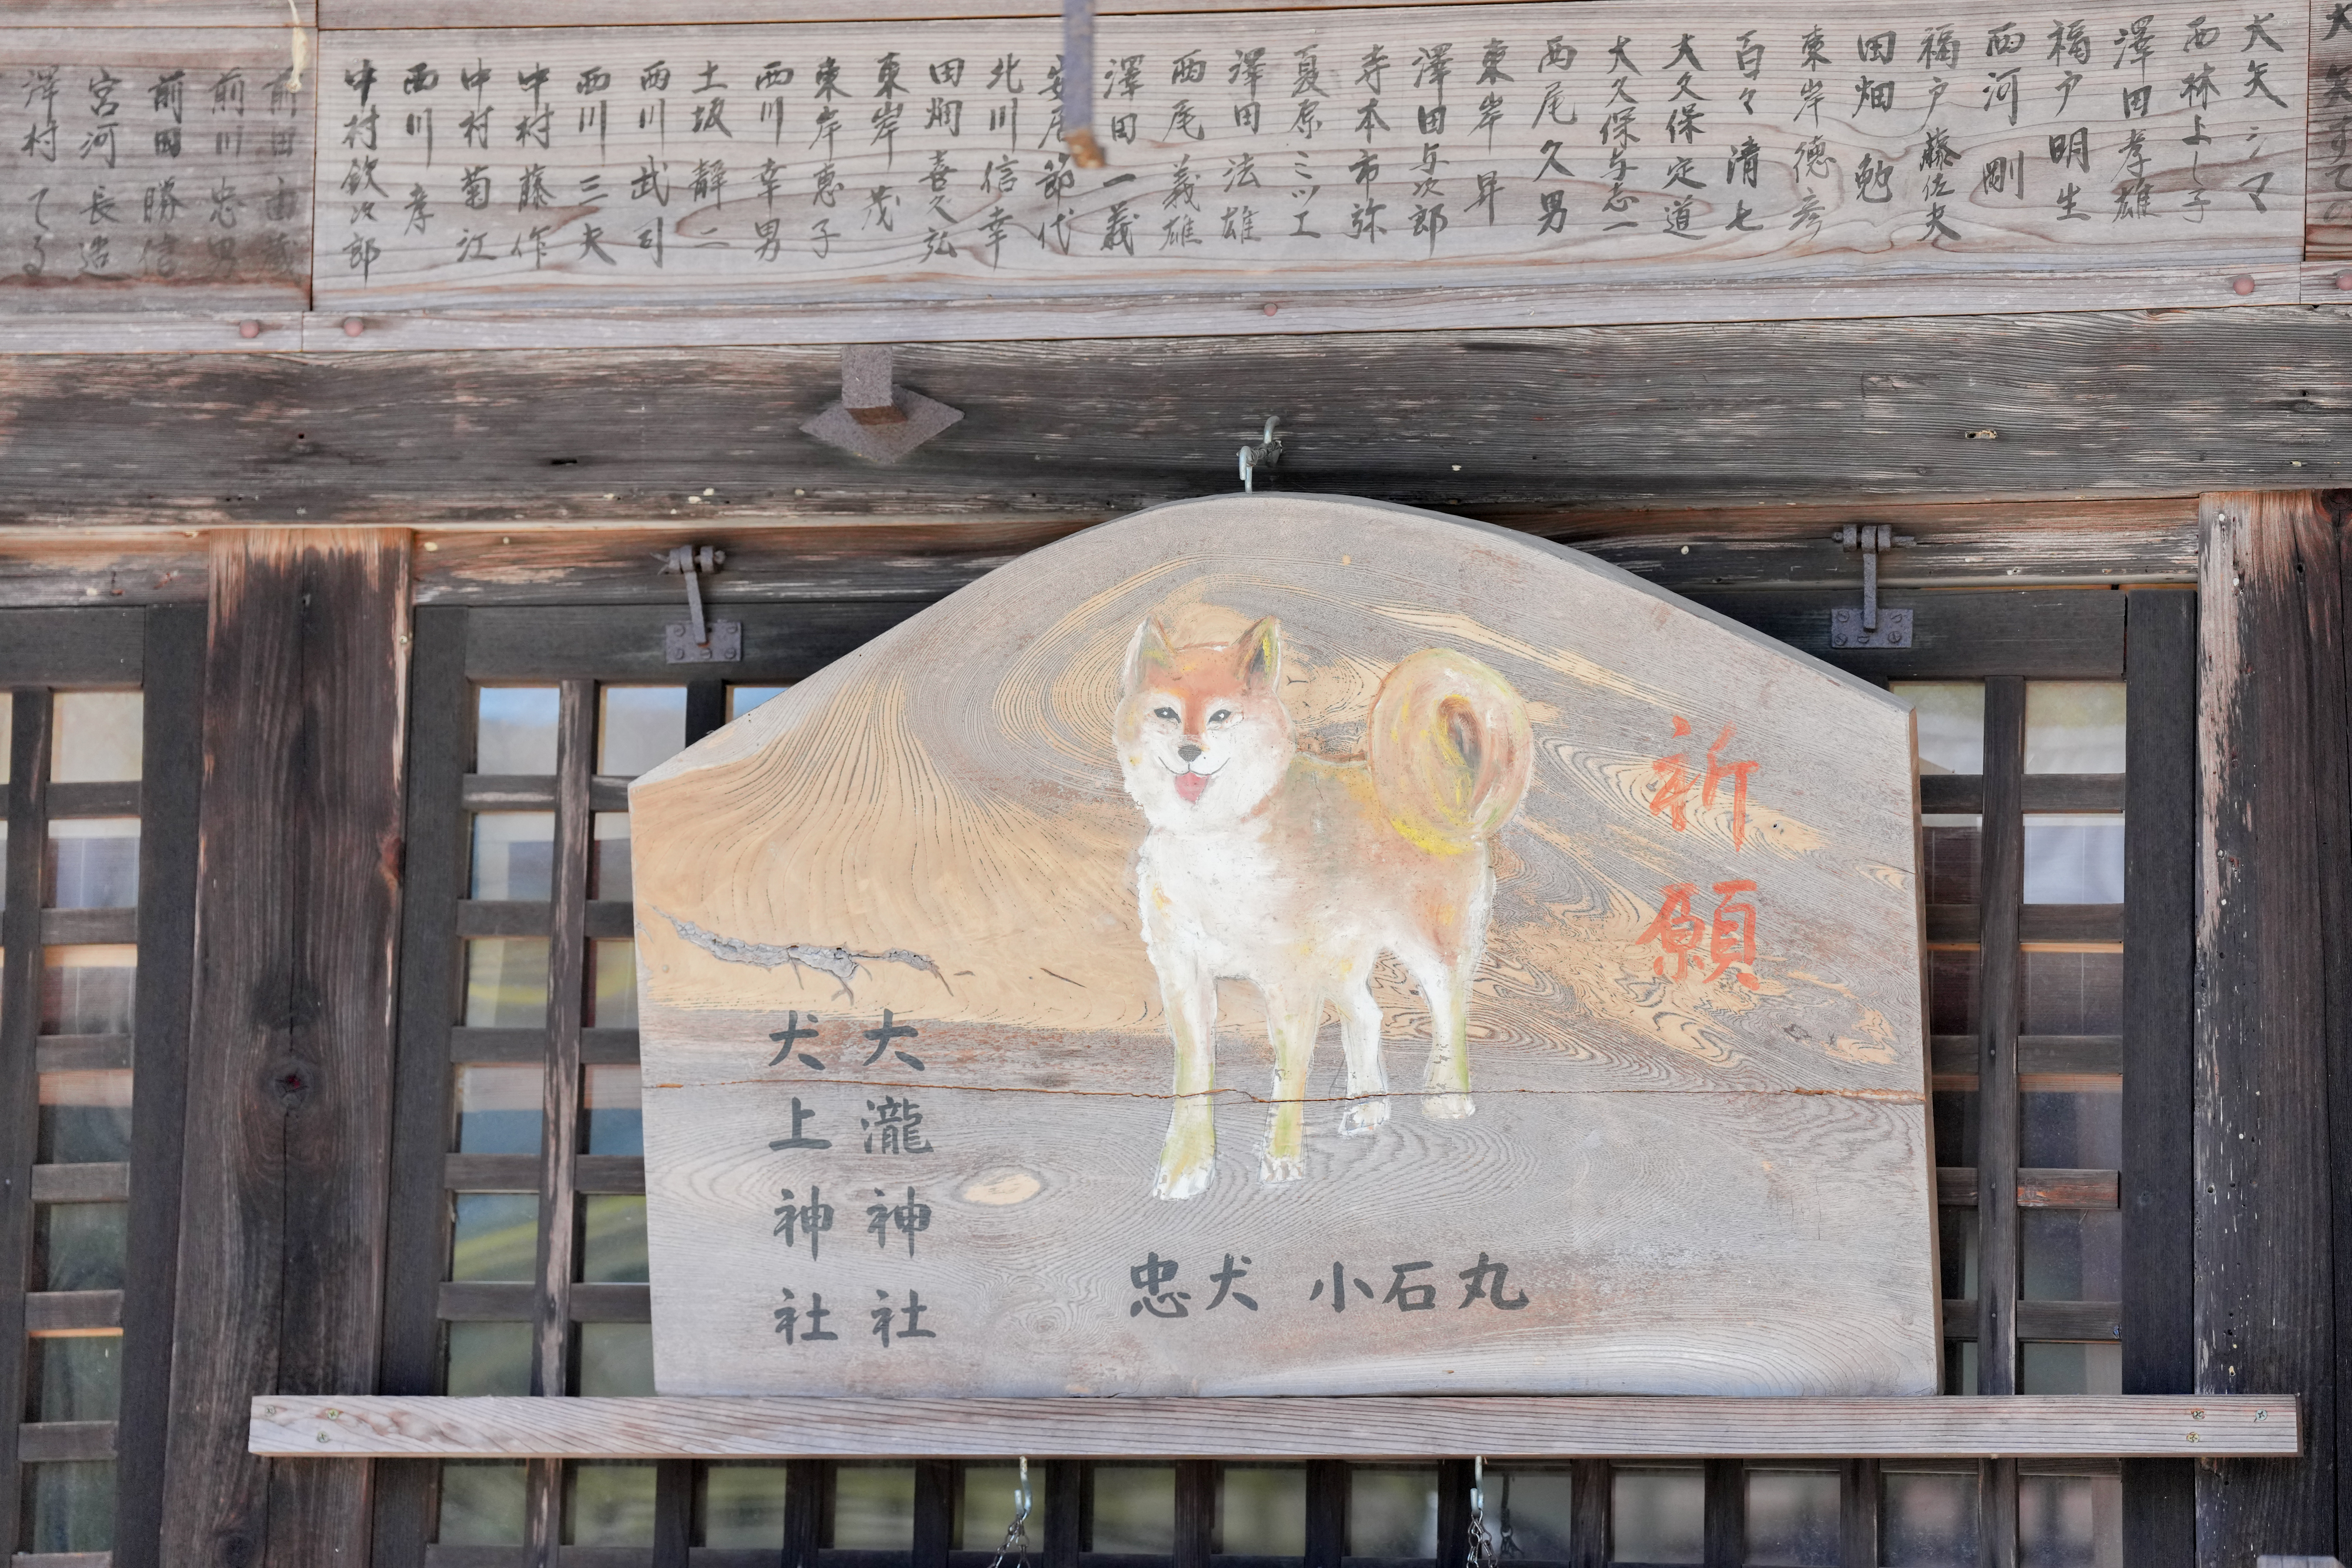 大矢シマ
西林よし子
澤田孝雄
福戸明生
西河剛
福戸藤佐夫
田畑勉
東岸徳彦
百々清七
大久保定道
大久保与志一
西尾久男
東岸昇
澤田与次郎
寺本市弥
夏原ミツエ
澤田法雄
西尾義雄
澤田一義
安居節代
北川信幸
田畑喜久弘
東岸茂
東岸恵子
西川幸男
土坂静二
西川武司
西川三夫
中村藤作
中村菊江
西川孝
中村欽次郎
前田
前川忠男
前田勝信
宮河長造
澤村てる
祈願
忠犬 小石丸
大瀧神社
犬上神社